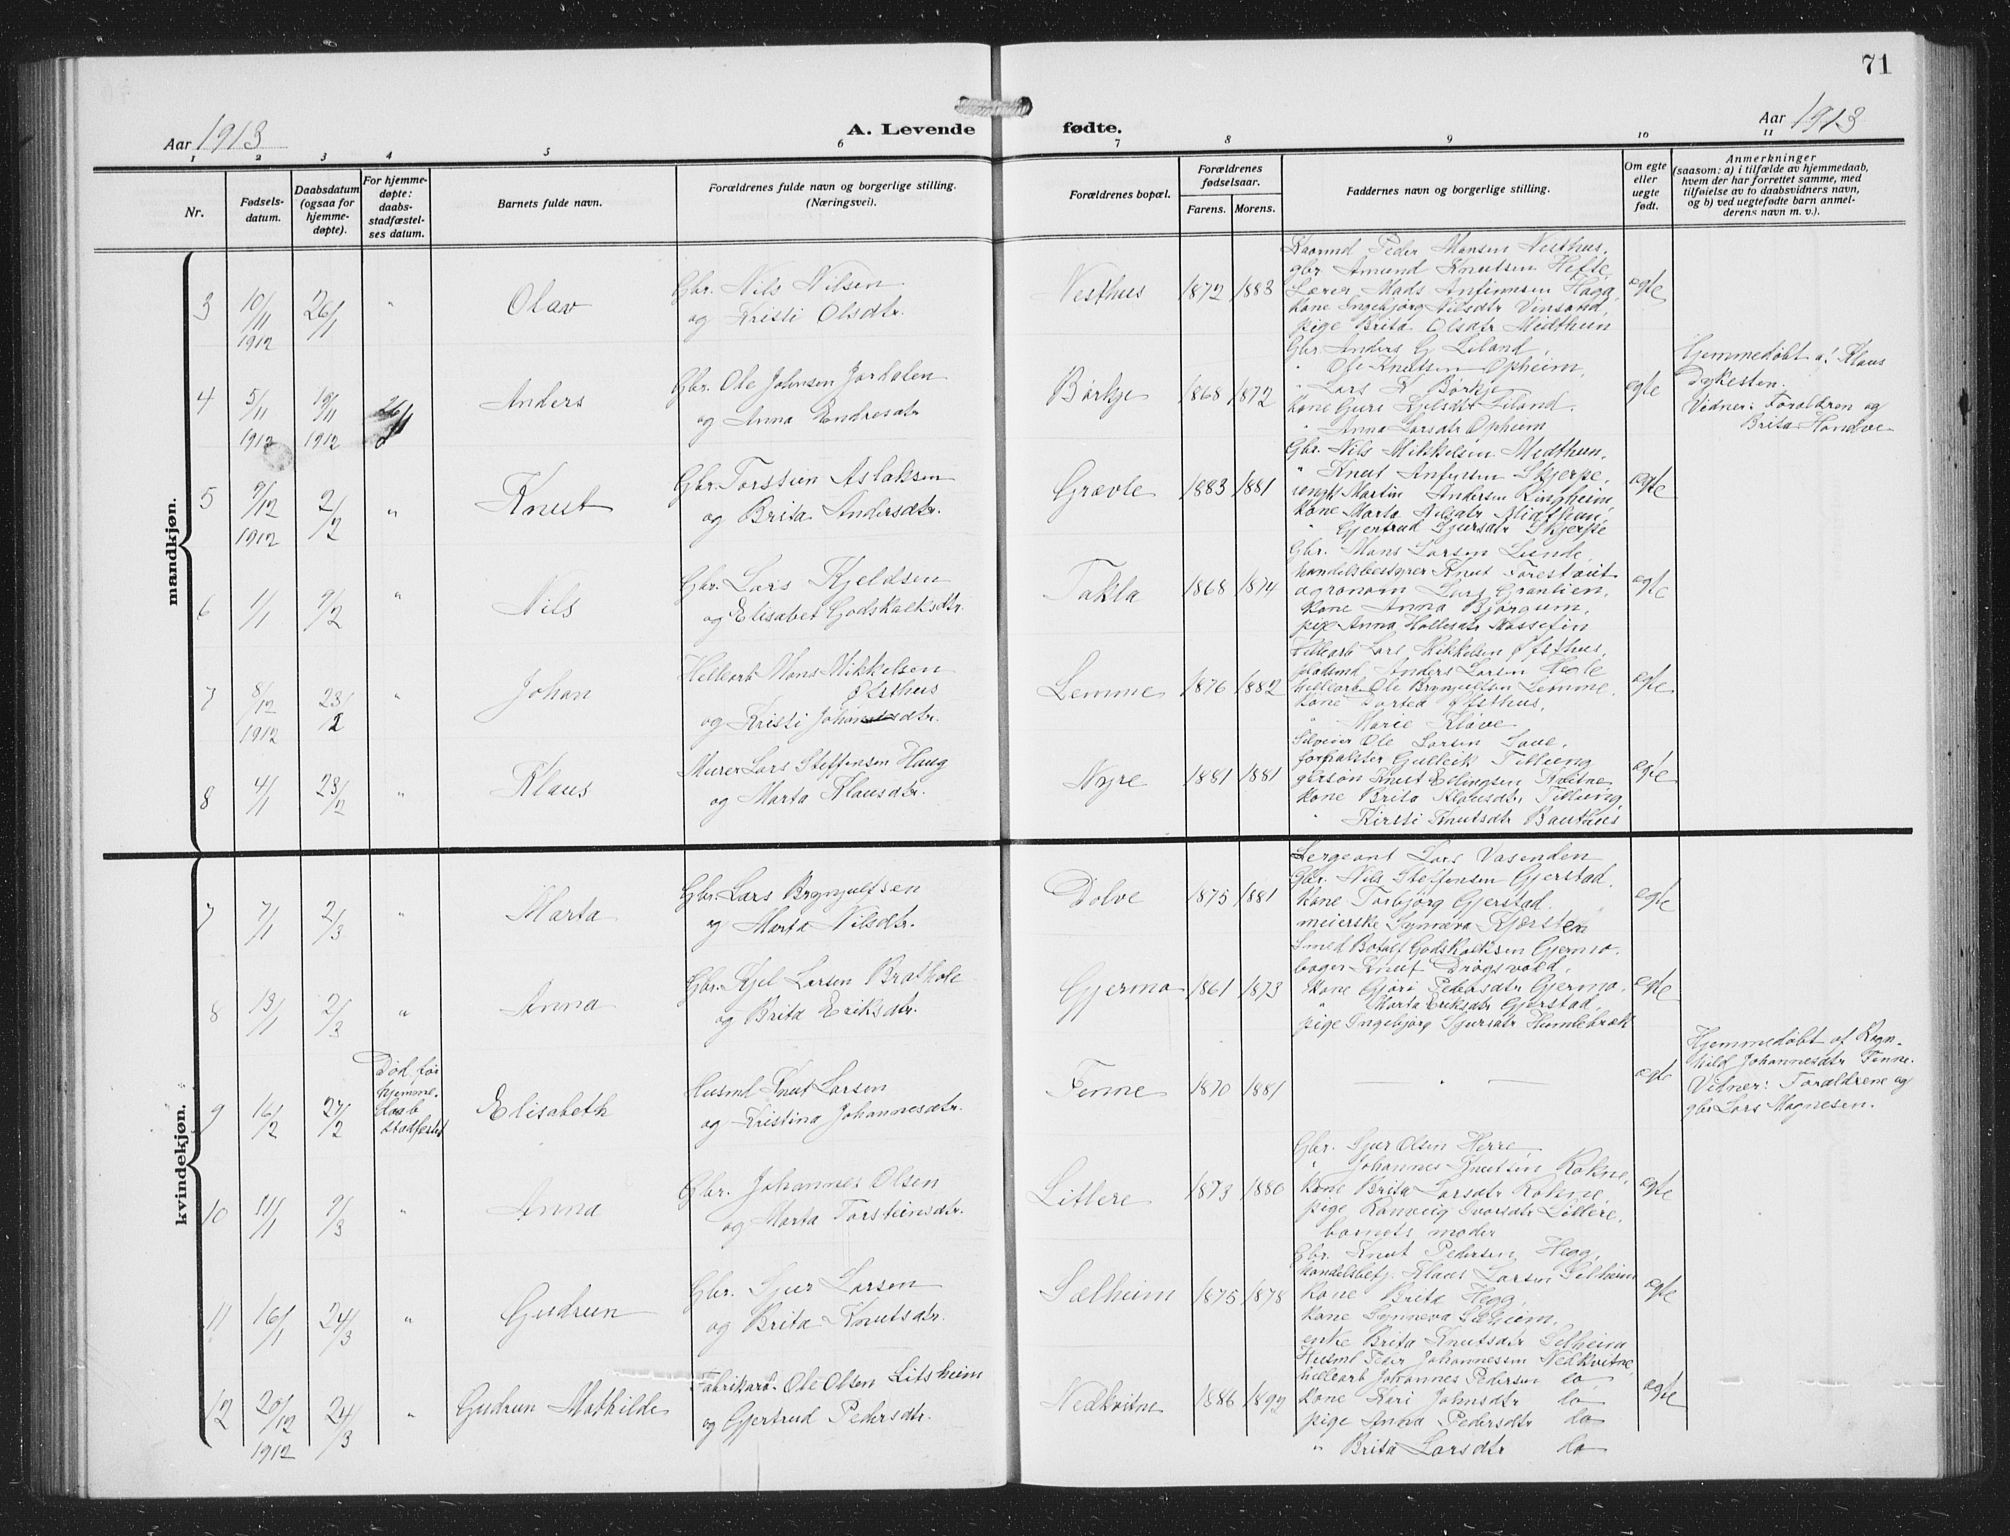 71
Aar 1913
A. Levende fødte.
Aar 1913
1 2 3 4 5 6 7 8 9 10 11
Nr.
Fødsels-
datum.
Daabsdatum
(ogsaa for
hjemme-
døpte).
For hjemme-
døpte:
daabs-
stadfæstel-
ses datum.
Barnets fulde navn.
Forældrenes fulde navn og borgerlige stilling.
(Næringsvei).
Forældrenes bopæl.
Forældrenes
fødselsaar.
Farens. Morens.
Faddernes navn og borgerlige stilling.
Om egte
eller
uegte
født.
Anmerkninger
(saasom: a) i tilfælde av hjemmedaab,
hvem der har forrettet samme, med
tilføielse av to daabsvidners navn,
og b) ved uegtefødte barn anmel-
derens navn m. v.).
mandkjøn.
3 10/11 1912 26/1 " Olav
Gbr. Nils Nilsen
og Kristi Olsdtr.
Nesthus 1872 1883
Kaarmd Peder Monsen Nesthus,
gbr Amund Knutsen Hefte,
Lærer Mads Anfinnsen Haga,
kone Ingebjørg Nilsdtr Vinsand,
pige Brita Olsdtr Midthun
egte
4 5/11 1912 19/11 1912 26/1 Anders
Gbr. Ole Johnsen Jorhalen
og Anna Endresdtr
Børkje 1868 1872
Gbr. Anders G Liland,
" Ole Knutsen Opheim,
" Lars K Børkje
kone Guri Kjelsdtr Liland.
" Anna Larsdtr Opheim
egte
Hjemmedøbt a! Klaus
Dykesten.
Vidner: Foraldren og
Brita Hondve
5 9/12 1912 2/2 " Knut
Gbr. Torstein Aslaksen
og Brita Andersdtr.
Grævle 1883 1881
Gbr. Nils Mikkelsen Midthun,
" Knut Anfinsen Skjerpe,
ungk Martin Andersen Ringheim
kone Marta Nilsdtr Midthun,
" Gjertrud Sjursdtr Skjerpe
egte
6 1/1 9/2 " Nils
Gbr. Lars Kjeldsen
og Elisabet Godskalksdtr.
Takla 1868 1874
Gbr. Mons Larsen Lunde,
handelsbestyrer Knut Forestveit
agronom Lars Grønlien,
kone Anna Bjørgum,
pige Anna
egte
7 8/12 1912 23/2 " Johan
Hellearb Mons Mikkelsen
Øfsthus
og Kristi Johannesdtr.
Lemme 1876 1882
Hellearb Lars Mikkelsen Øfsthus,
pladsmd Anders Larsen Hegle
hellearb Ole Brynjulfsen Lemme,
kone Dortea Øfsthus,
" Marie Kløve
egte
8 4/1 23/2 " Klaus
Murer Lars Steffensen Haug
og Marta Klausdtr.
Nyre 1881 1881
Ole Larsen
forpakter Gulleik Tillung
garson Knut Ellingsen
kone Brita Klausdtr Tillung,
" Kirsti Knutsdtr
egte
kvindekjøn.
7 7/1 2/3 " Marta
Gbr. Lars Brynjulfsen
og Marta Nilsdtr.
Dolve 1875 1881
Sergeant Lars Vasenden
Gbr. Nils Steffensen Gjerstad.
kone Torbjørg Gjerstad
meierske Synneva Kjørsten
egte
8 13/1 2/3 " Anna
Gbr. Kjel Larsen Brathole
og Brita Eriksdtr.
Gjermo 1861 1873
Smed Botolf Godskalksen Gjermo.
bager Knut Drøgsvold,
kone Gjøri Pedersdtr Gjermo,
" Marta Eriksdtr Gjerstad,
pige Ingebjørg Sjursdtr Humlebræk
egte
9 16/2 27/2
Død før
hjemme-
daab
stadfæstet
Elisabeth
Husmd Knut Larsen
og Kristina Johannesdtr.
Finne 1870 1881 — " —
egte
Hjemmedøbt af Ragn-
hild Johannesdtr Finne.
Vidner: Foraldrene og
gbr Lars Magnesen.
10 11/1 9/3 " Anna
Gbr. Johannes Olsen
og Marta Torsteinsdtr.
Litlere 1873 1880
Gbr. Sjur Olsen Herre,
" Johannes Knutsen Rokne,
kone Brita Larsdtr Rokne,
pige Ranveig Ivarsdtr Litlere,
barnets moder
egte
11 16/1 24/3 " Gudrun
Gbr. Sjur Larsen
og Brita Knutsdtr.
Sælheim 1875 1878
Gbr. Knut Pedersen Hegg,
handelsbetj. Klaus Larsen Selheim
kone Brita Hegg,
kone Synneva Selheim,
enke Brita Knutsdtr Selheim
egte
12 20/12 1912 24/3 " Gudrun Mathilde
Fabrikarb. Ole Olsen Litsheim
og Gjertrud Pedersdtr.
Nedkvitne 1886 1892
Husmd Peder Johannessen Nedkvitne,
hellearb Johannes Pedersen do,
kone Kari Johnsdtr do
pige Anna Pedersdtr do
" Brita Larsdtr do
egte